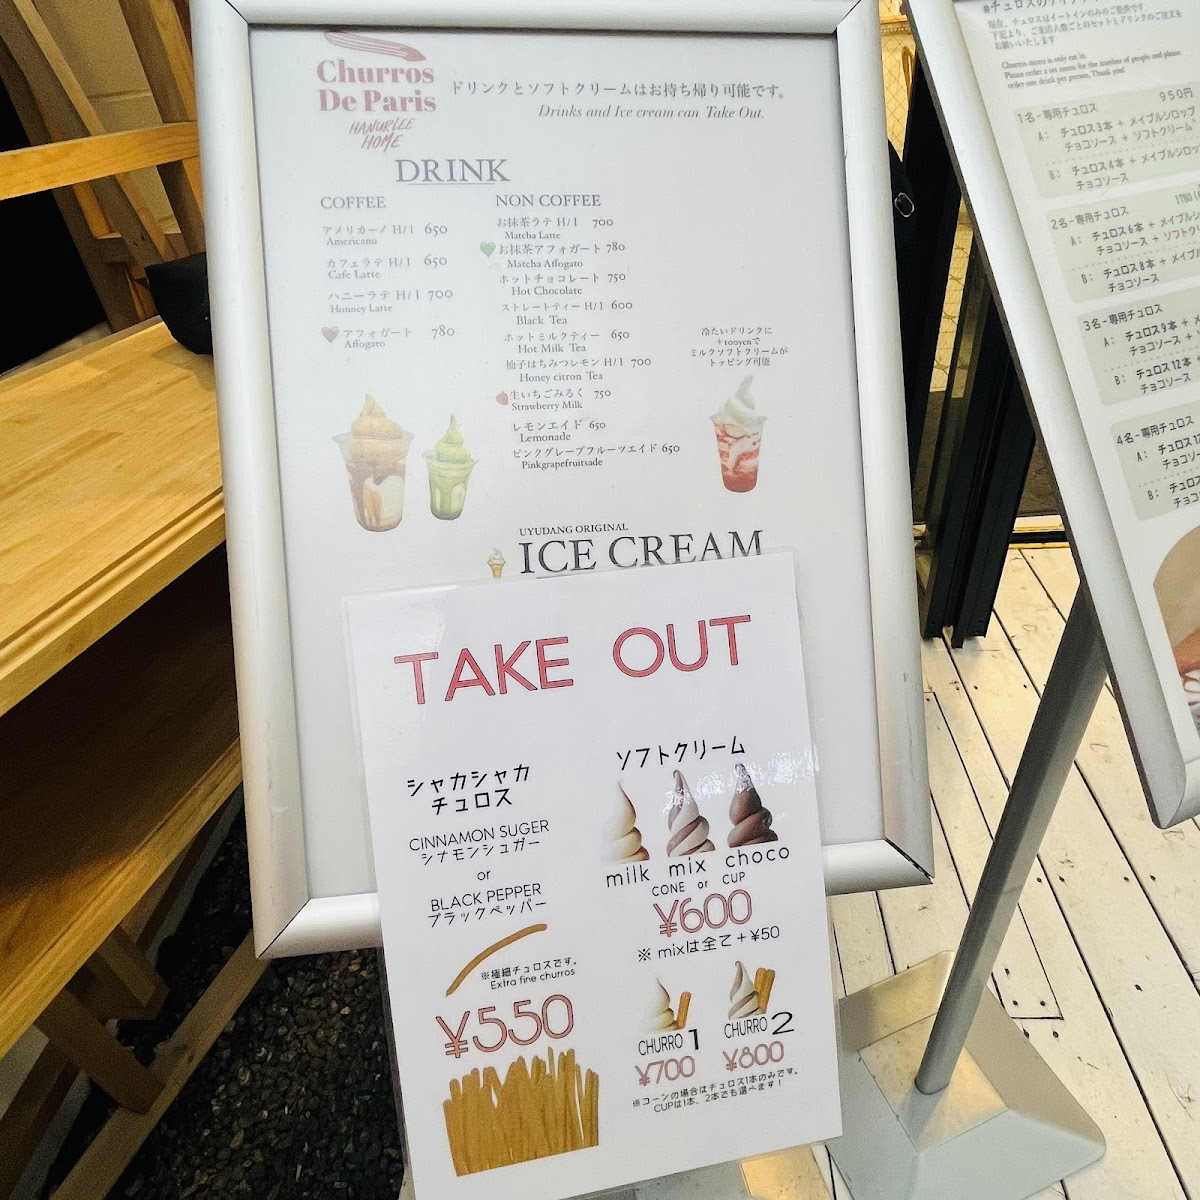 Churros
De Paris
HANURLEE
HOME
ドリンクとソフトクリームはお持ち帰り可能です。
Drinks and Ice cream can Take Out.
DRINK
COFFEE
アメリカーノ H/I 650
Americano
カフェラテ H/I 650
Cafe Latte
ハニーラテ H/I 700
Honney Latte
アフォガート 780
Affogato
NON COFFEE
お抹茶ラテ H/I 700
Matcha Latte
お抹茶アフォガート 780
Matcha Affogato
ホットチョコレート 750
Hot Chocolate
ストレートティー H/I 600
Black Tea
ホットミルクティー 650
Hot Milk Tea
柚子はちみつレモン H/I 700
Honey citron Tea
生いちごみるく 750
Strawberry Milk
レモンエイド 650
Lemonade
ピンクグレープフルーツエイド 650
Pinkgrapefruitsade
冷たいドリンクに
+100yenで
ミルクソフトクリームが
トッピング可能
UYUDANG ORIGINAL
ICE CREAM
TAKE OUT
シャカシャカ
チュロス
CINNAMON SUGER
シナモンシュガー
or
BLACK PEPPER
ブラックペッパー
※極細チュロスです。
Extra fine churros
¥550
ソフトクリーム
milk mix choco
CONE or CUP
¥600
※ mixは全て+¥50
CHURRO 1
¥700
CHURRO 2
¥800
※コーンの場合はチュロス1本のみです。
CUPは1本、2本でも選べます!
現在、チュロスはイートインのみのご提供です
下記より、ご来店人数ごとのセットとドリンクのご注文を
お願いいたします
Churros menu is only eat in.
Please order a set menu for the number of people and please
order one drink per person. Thank you!
1名-専用チュロス 950円
A: チュロス3本 + メイプルシロップ
チョコソース + ソフトクリーム
B: チュロス4本 + メイプルシロップ
チョコソース
2名-専用チュロス 1780
A: チュロス6本 + メイプル
チョコソース + ソフトクリ
B: チュロス8本 + メイプ
チョコソース
3名-専用チュロス
A: チュロス9本 + メ
チョコソース +
B: チュロス12本
チョコソース
4名-専用チュロス
A: チュロス
チョコソー
B: チュロス
チョコソ